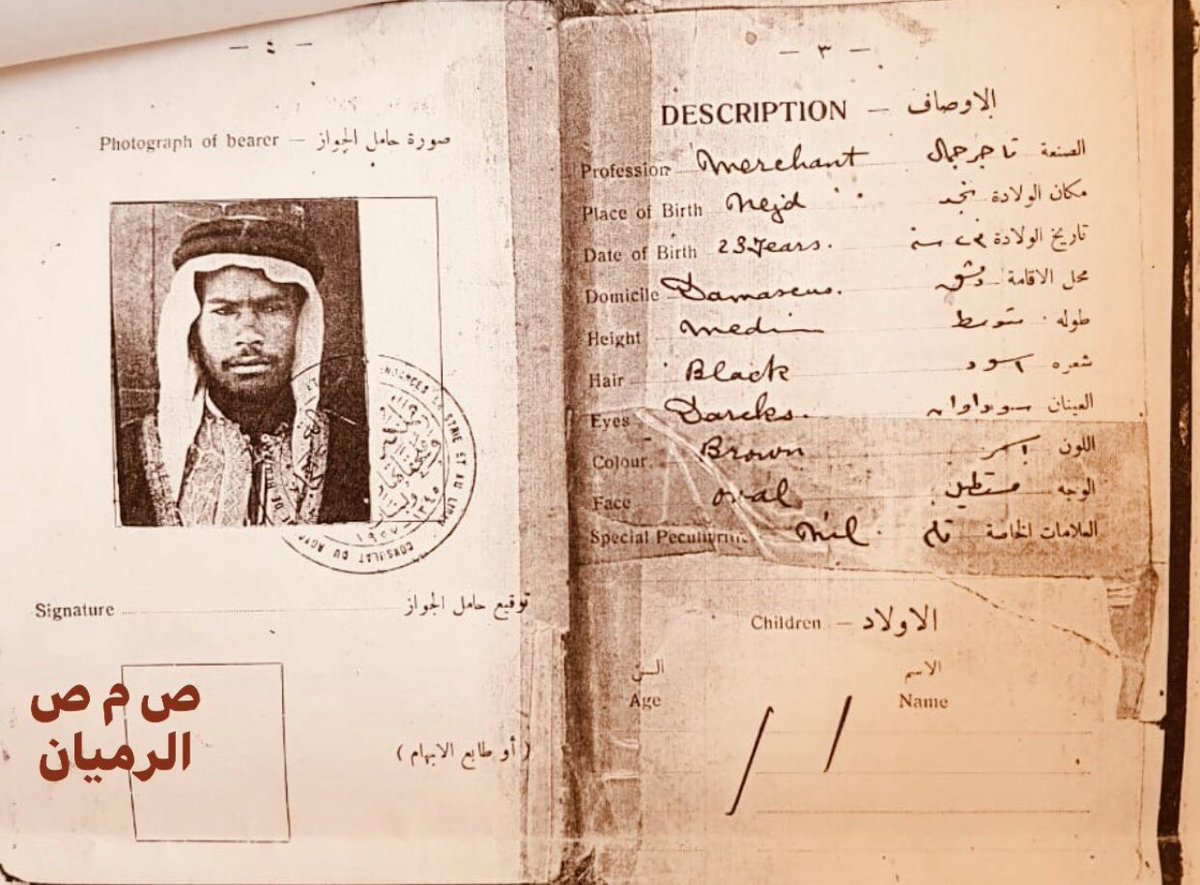 — ٣ —
DESCRIPTION — الاوصاف
Profession Merchant تاجر جمال الصنعة
Place of Birth Nejd نجد مكان الولادة
Date of Birth 23 Years. ٢٣ سنة تاريخ الولادة
Domicile Damascus. دمشق محل الاقامة
Height Medium متوسط طوله
Hair Black اسود شعره
Eyes Darcks. سوداوان العينان
Colour Brown اسمر اللون
Face oval مستطيل الوجه
Special Peculiarities Nil. العلامات الخاصة
Children — الاولاد
السن الاسم
Age Name
— ٤ —
Photograph of bearer — صورة حامل الجواز
CONSULAT DU
ET AU LIBAN
Signature توقيع حامل الجواز
(أو طابع الابهام)
ص م ص
الرميان